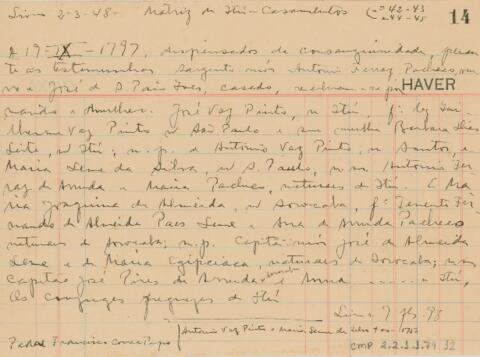 Livro 2-3-48- Matriz de Itú - Casamentos (-= 42-43
= 44-45
14
A 19-IX-1797, dispensados de consanguinidade, peran-
te as testemunhas sargento mór Antonio Ferraz Pacheco,
e José de S. Paio Goes, casado, receberam-se por
HAVER
marido e mulher. José Vaz Pinto, n Itú, fº leg Gui
lherme Vaz Pinto n São Paulo e sua mulher Barbara Dias
Leite, n Itú; n.p. de Antonio Vaz Pinto, n Santos, e
Maria Leme da Silva, n S. Paulo, n.m. Antonio Fer-
raz de Arruda e Maria Pacheco, naturaes de Itú. E Ma-
ria Joaquina de Almeida, n Sorocaba, fª Tenente Fer-
nando de Almeida Paes Leme e Ana de Arruda Pacheco
naturaes de Sorocaba; n.p. Capitão mór José de Almeida
Leme e de Maria Egipciaca, naturaes de Sorocaba; n.m.
capitão José Pires de Arruda e Anna ..... n Itú,
Os conjuges freguezes de Itú
Livro 7 fls. 98
Padre Francisco
Antonio Vaz Pinto e Maria Leme da Silva
CMP 2.2.3.3.79 32